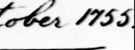 tober 1755.